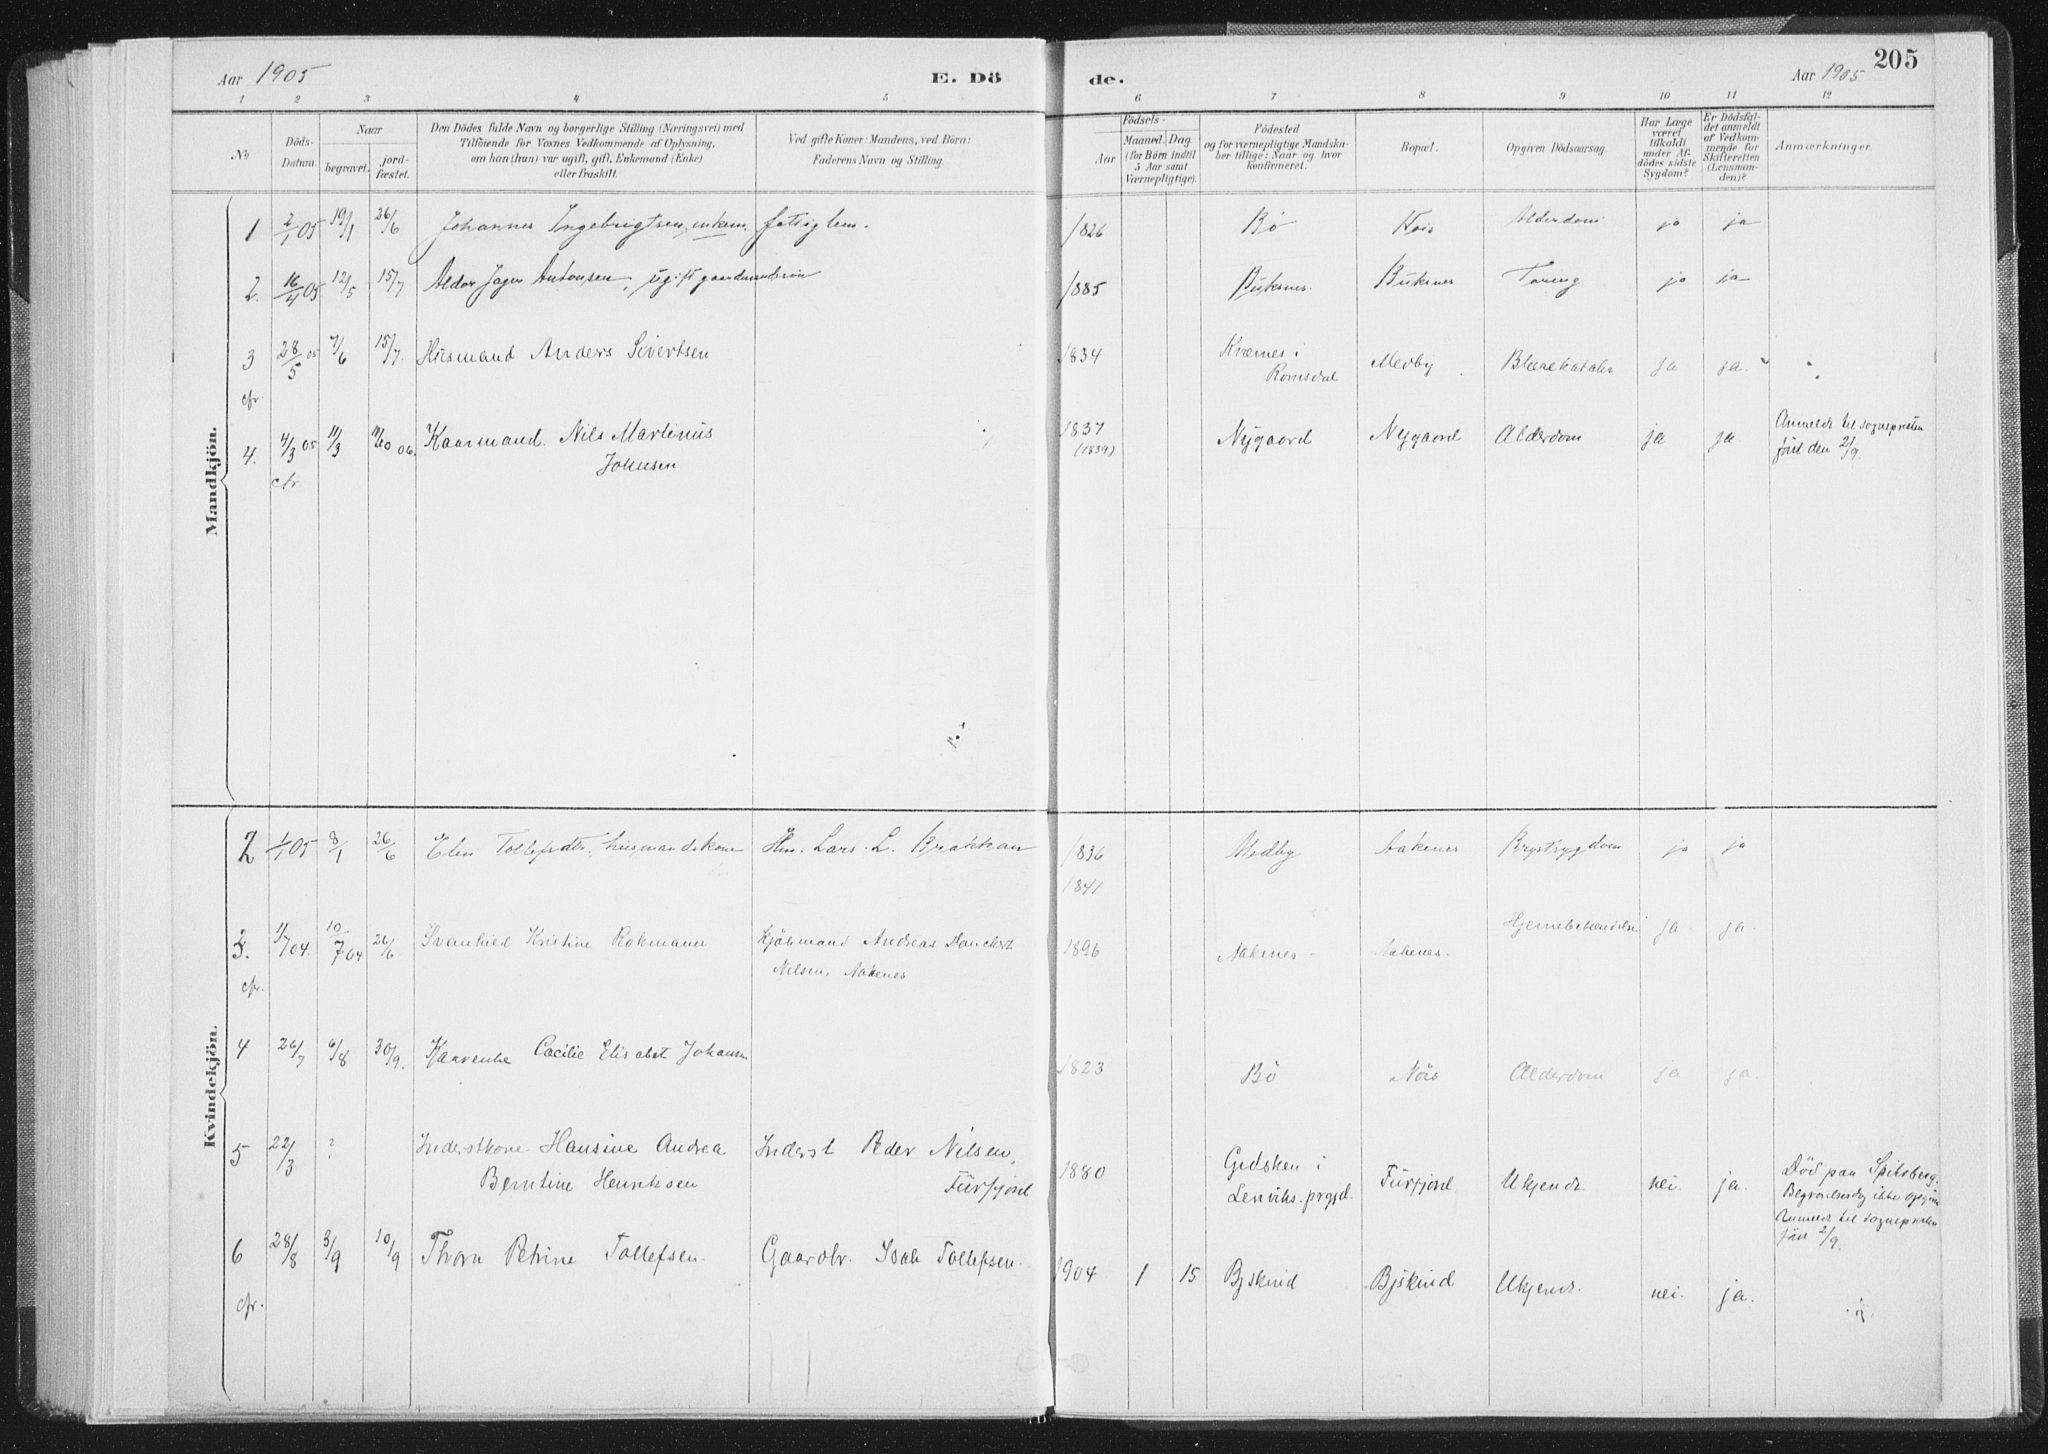 Aar 1905 E. Dö de. Aar 1905 205
1 2 3 4 5 6 7 8 9 10 11 12
No Döds-Datum. Naar begravet. jord-fæstet. Den Dödes fulde Navn og borgerlige Stilling (Næringsvei) med Tilföiende for Voxnes Vedkommende af Oplysning, om han (hun) var ugift, gift, Enkemand (Enke) eller fraskilt. Ved gifte Koner: Mandens, ved Börn: Faderens Navn og Stilling. Födsels- Aar Maaned. Dag. (for Börn indtil 5 Aar samt Værnepligtige). Födested og for værnepligtige Mandskaber tillige: Naar og hvor konfirmeret. Bopæl. Opgiven Dödsaarsag. Har Læge været tilkaldt under Afdödes sidste Sygdom? Er Dödsfaldet anmeldt af Vedkommende for Skifteretten (Lensmanden)? Anmærkninger.
Mandkjön.
1 2/1 05 19/1 26/6 Johannes Ingebrigtsen, enkem. fattiglem. 1826 Bö Alderdom ja ja
2. 16/4 05 12/5 15/7 Aldor Jager Antonsen, ugift gaardmandssön 1885 Buksnes. Buksnes Tæring ja ja
3 28/5 05 7/6 15/7. Husmand Anders Sivertsen 1834 Kværnes i Medby Blærekatahr ja ja.
cfr. Romsdal
4. 4/3 05 11/3 06. Kaarmand. Nils Martinus 1837 Nygaard Nygaard Alderdom ja ja Anmeldt til sognepresten
cfr. Johnsen (1839) först den 21/9.
Kvindekjön.
2 1/1 05 8/1 26/6 Elen Tollefsdtr., husmandskone Hm. Lars L. Brakkan 1836 Medby Aakenes Brystsygdom ja ja
1841
3. 1/7 04. 10/7 04 26/6 Svanhild Kristine Rokmann Kjöbmand Andreas Danckert 1896 Aakenes Aakenes. Hjernebetændelse ja ja.
cfr. Nilsen, Aakenes
4 26/7 6/8 30/9. Kaarenke Cæcilie Elisabet Johansen 1823 Bö Nöis Alderdom ja ja.
5 22/3 ? Inderstkone Hansine Andrea Inderst Peder Nilsen, 1880 Gidsken i Furfjord Ukjendt nei. ja. Död paa Spitsberg.
Berntine Henriksen Furfjord Lenviks. prgjd. Begravelsesdag ikke opgiven
Anmeldt til sognepresten
först 2/9.
6 28/8 3/9 10/9 Thora Petrine Tollefsen. Gaardbr. Isak Tollefsen. 1904 1 15 Bjskind Bjskind Ukjendt. nei. ja.
cfr.